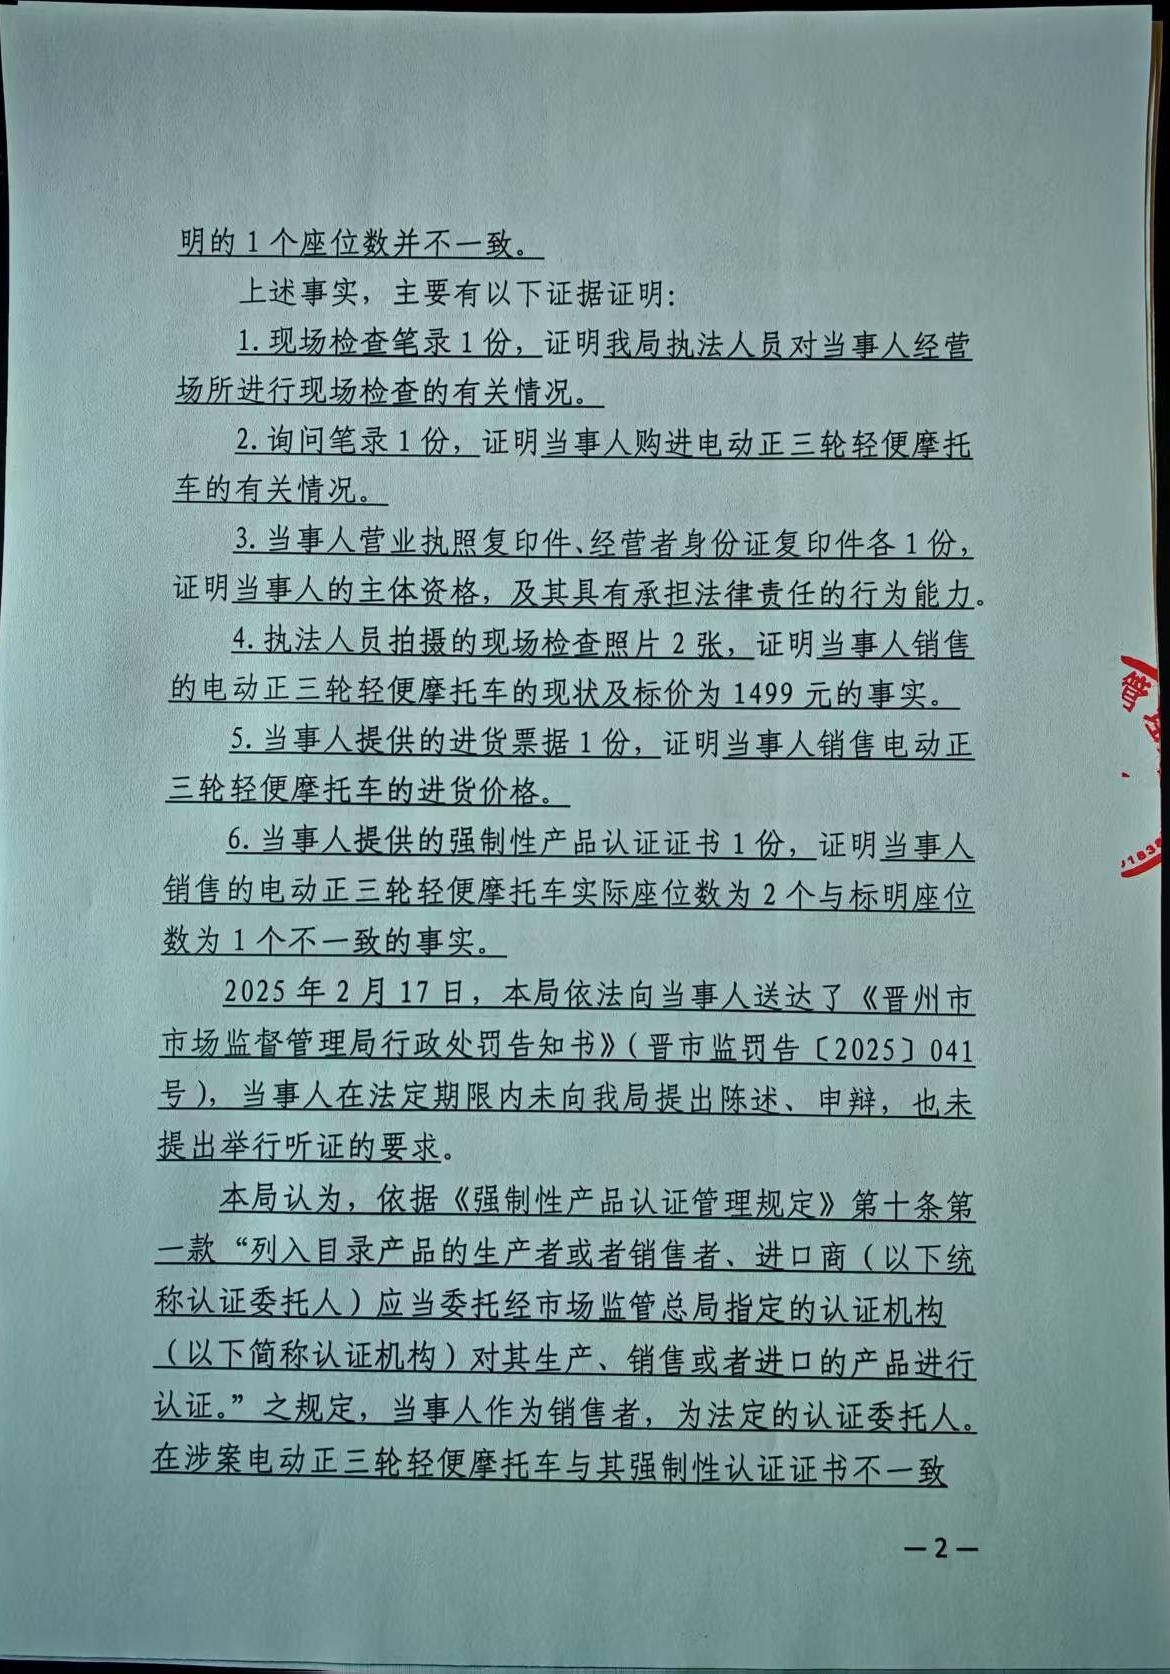 明的1个座位数并不一致。
上述事实，主要有以下证据证明：
1.现场检查笔录1份，证明我局执法人员对当事人经营
场所进行现场检查的有关情况。
2.询问笔录1份，证明当事人购进电动正三轮轻便摩托
车的有关情况。
3.当事人营业执照复印件、经营者身份证复印件各1份，
证明当事人的主体资格，及其具有承担法律责任的行为能力。
4.执法人员拍摄的现场检查照片2张，证明当事人销售
的电动正三轮轻便摩托车的现状及标价为1499元的事实。
5.当事人提供的进货票据1份，证明当事人销售电动正
三轮轻便摩托车的进货价格。
6.当事人提供的强制性产品认证证书1份，证明当事人
销售的电动正三轮轻便摩托车实际座位数为2个与标明座位
数为1个不一致的事实。
2025年2月17日，本局依法向当事人送达了《晋州市
市场监督管理局行政处罚告知书》（晋市监罚告〔2025〕041
号），当事人在法定期限内未向我局提出陈述、申辩，也未
提出举行听证的要求。
本局认为，依据《强制性产品认证管理规定》第十条第
一款“列入目录产品的生产者或者销售者、进口商（以下统
称认证委托人）应当委托经市场监管总局指定的认证机构
（以下简称认证机构）对其生产、销售或者进口的产品进行
认证。”之规定，当事人作为销售者，为法定的认证委托人。
在涉案电动正三轮轻便摩托车与其强制性认证证书不一致
—2—
管